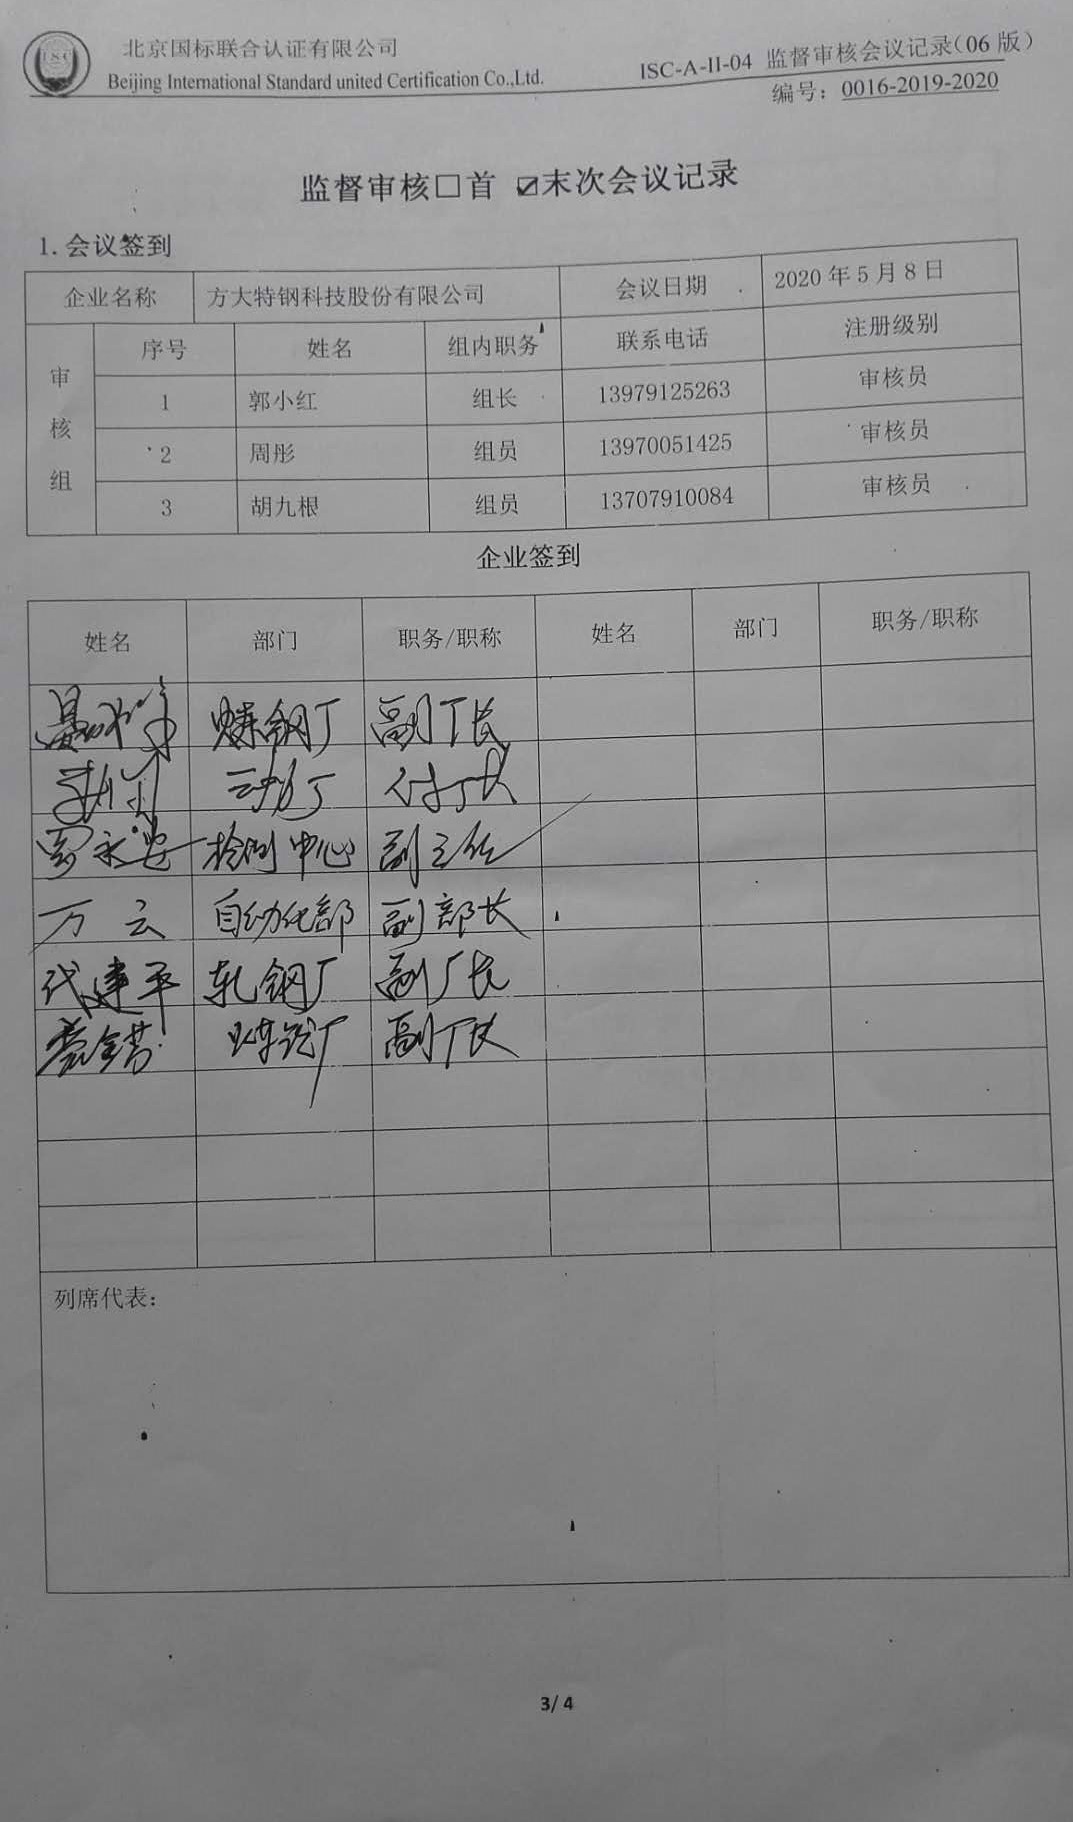 北京国标联合认证有限公司
Beijing International Standard united Certification Co.,Ltd.
ISC-A-II-04 监督审核会议记录(06 版)
编号：0016-2019-2020
监督审核□首 ☑末次会议记录
1. 会议签到
企业名称 方大特钢科技股份有限公司 会议日期 2020 年 5 月 8 日
审核组
序号 姓名 组内职务 联系电话 注册级别
1 郭小红 组长 13979125263 审核员
2 周彤 组员 13970051425 审核员
3 胡九根 组员 13707910084 审核员
企业签到
姓名 部门 职务/职称 姓名 部门 职务/职称
炼钢厂 副厂长
动力厂 付厂长
检测中心 副主任
万云 自动化部 副部长
代建平 轧钢厂 副厂长
炼铁厂 副厂长
列席代表：
3/ 4